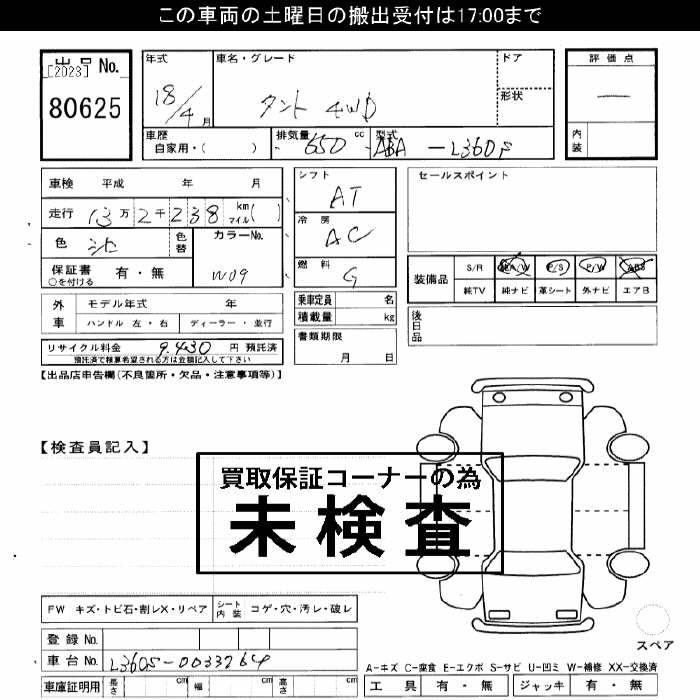 この車両の土曜日の搬出受付は17:00まで
出品 No.
[2023]
80625
年式
18/4 月
車名・グレード
タント 4WD
ドア
形状
評価点
—
内装
車歴
自家用・( )
排気量
650 cc
型式
ABA-L360S
車検 平成 年 月
走行 13万2千238 km マイル( )
色 シロ
色替
カラーNo.
W09
保証書 有・無
○を付ける
シフト
AT
冷房
AC
燃料
G
セールスポイント
装備品
S/R 純A/W P/S P/W ABS
純TV 純ナビ 革シート 外ナビ エアB
外車
モデル年式 年
ハンドル 左・右 ディーラー・並行
乗車定員 名
積載量 kg
後日品
リサイクル料金 9,430 円 預託済
預託済で精算希望される方は金額記入して下さい
書類期限
月 日
【出品店申告欄(不良箇所・欠品・注意事項等)】
【検査員記入】
買取保証コーナーの為
未検査
FW キズ・トビ石・割レX・リペア
シート内装 コゲ・穴・汚レ・破レ
登録 No.
車台 No. L360S-0033264
車庫証明用 長さ cm 幅 cm 高さ cm
スペア
A-キズ C-腐食 E-エクボ S-サビ U-凹ミ W-補修 XX-交換済
工具 有・無 ジャッキ 有・無